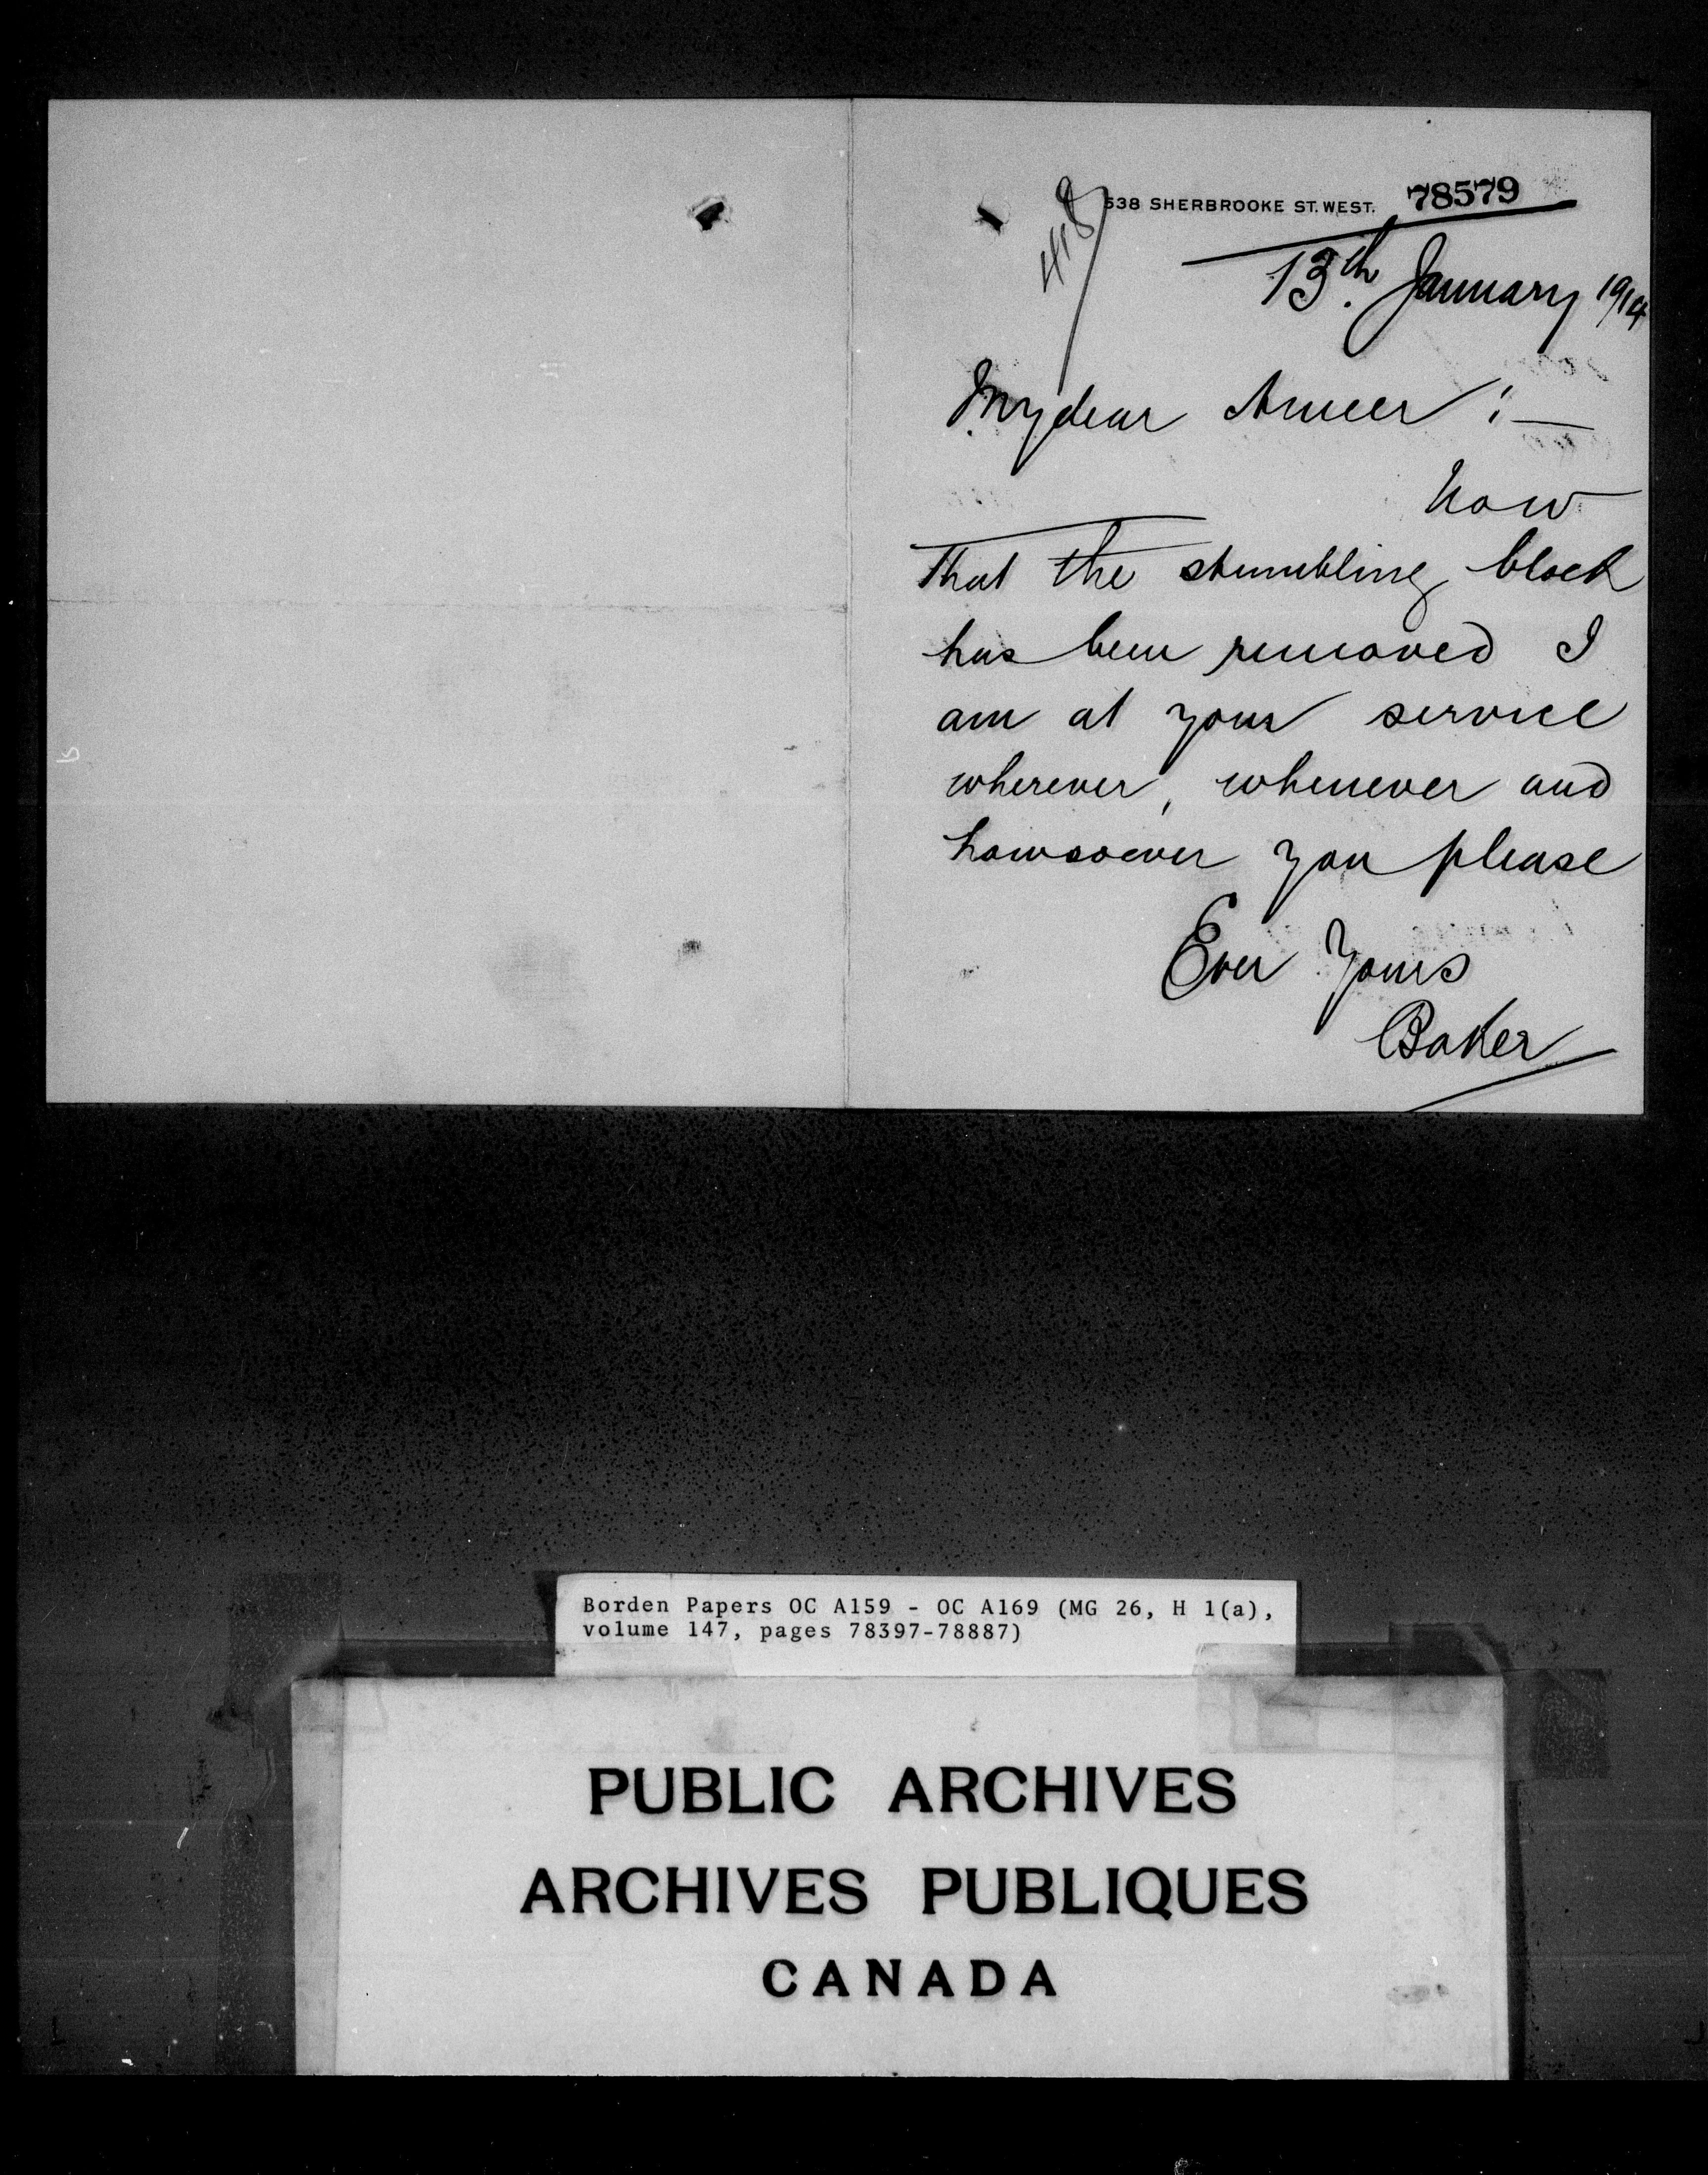 538 SHERBROOKE ST. WEST. 78579
13th. January 1914
My dear Ameer :—
Now
that the stumbling block
has been removed I
am at your service
wherever, whenever and
howsoever you please
Ever Yours
Baker
Borden Papers OC A159 - OC A169 (MG 26, H 1(a),
volume 147, pages 78397-78887)
PUBLIC ARCHIVES
ARCHIVES PUBLIQUES
CANADA